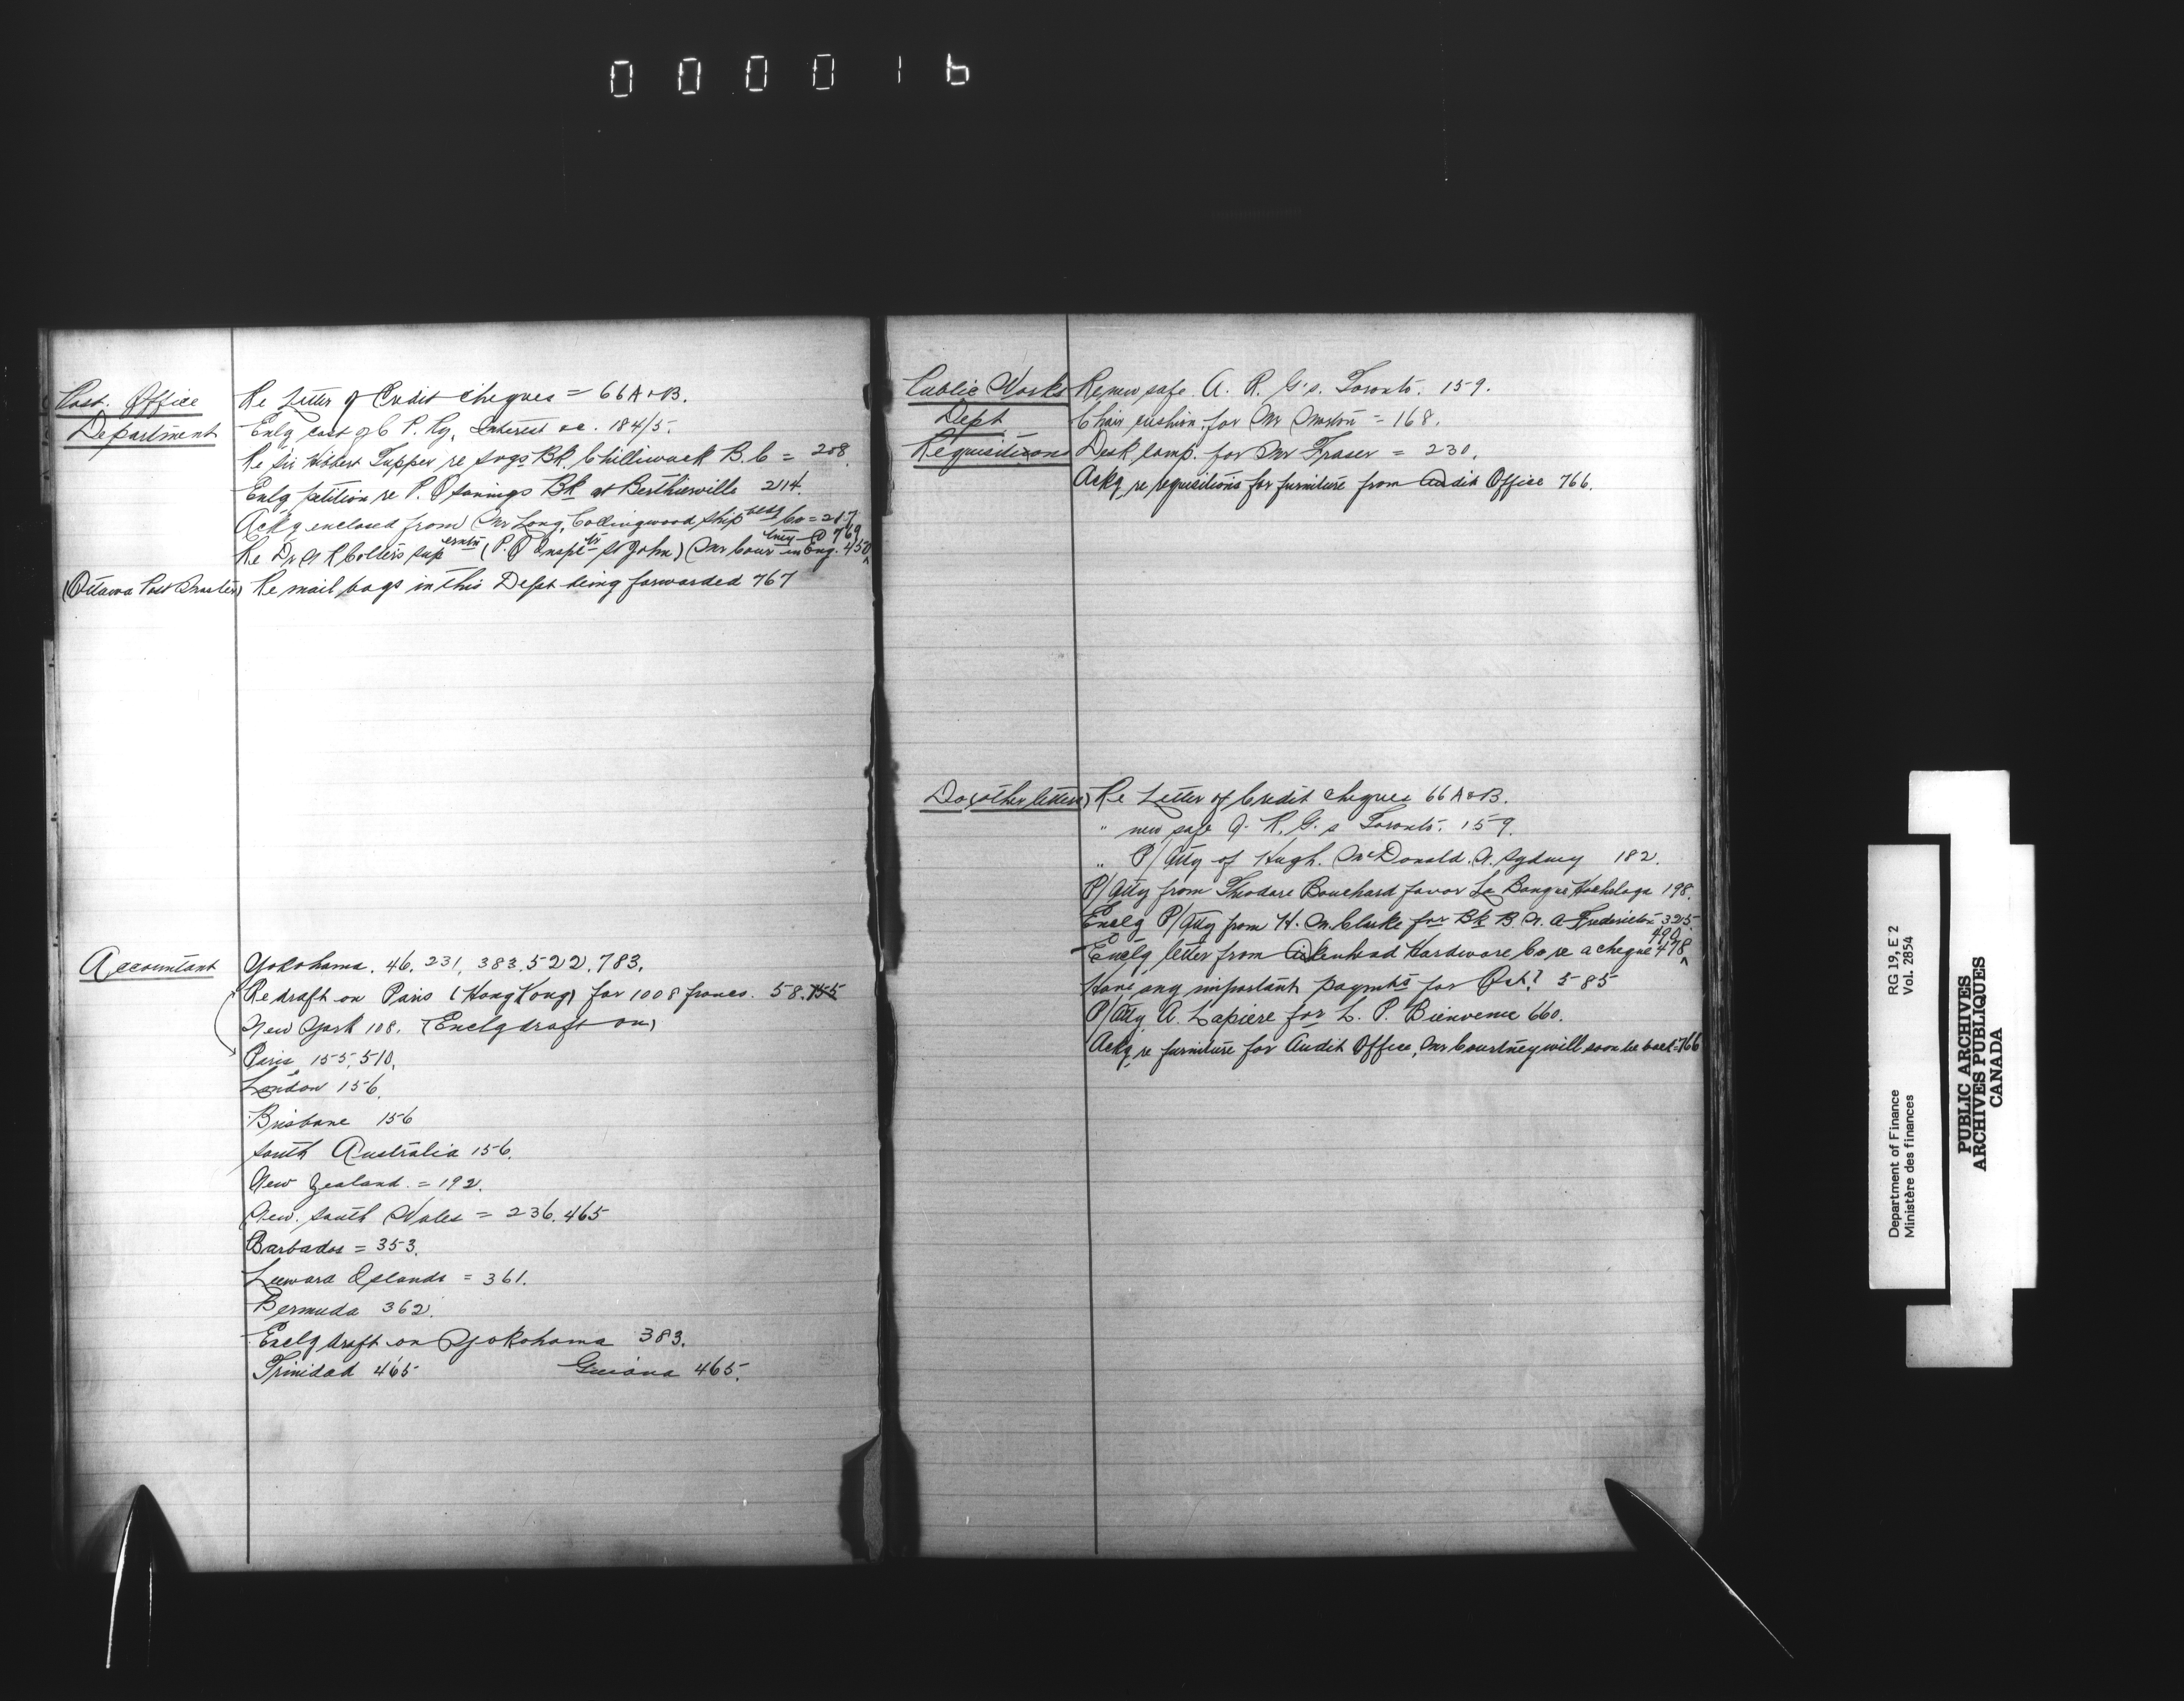 000016
Post Office
Department
Re Letter of Credit cheques = 66A & B.
Enlg cost of C P. Ry, Interest &c. 184/5.
Re Sir Hibbert Tupper re Svgs Bk. Chilliwack B. C = 208
Enlg petition re P. O Savings Bk at Berthierville 214.
Ackg enclosed from Mr Long, Collingwood Ship Co = 217
Re Dr A R (P. O Inspetr St John) (Mr Courtney in Eng. 450 769
(Ottawa Post Master) Re mail bags in this Dept being forwarded 767
Accountant
Yokohama. 46. 231, 383. 522. 783.
Re draft on Paris (Hong Kong) for 1008 francs. 58. 155
New York 108. (Enclg draft on)
Paris 155, 510,
London 156.
Brisbane 156
South Australia 156.
New Zealand. = 192.
New. South Wales = 236. 465
Barbados = 353.
Leeward Islands = 361.
Bermuda 362.
Enclg draft on Yokohama 383.
Trinidad 465 Guiana 465.
Public Works
Dept
Requisitions
Re new safe A. R. G's. Toronto. 159.
Chair cushion for Mr = 168.
Desk lamp. for Mr Fraser = 230.
Ackg re requisitions for furniture from Audit Office 766.
Do (other letters) Re Letter of Credit cheques 66 A & B.
" new safe A. R. G. s Toronto. 159.
" P/Atty of Hugh. McDonald. N. Sydney 182.
P/Atty from Theodore Bouchard favor La Banque Hochelaga 198.
Enclg P/Atty from H. M. Clarke for Bk B. N. A Fredericton 325
Enclg letter from Aikenhead Hardware Co re a cheque 478 490
Have any important paymts for Oct? 585
P/Atty A. Lapiere for L. P. Bienvenue 660.
Ackg re furniture for Audit Office, Mr Courtney will soon be back = 766
Department of Finance
Ministère des finances
RG 19, E 2
Vol. 2854
PUBLIC ARCHIVES
ARCHIVES PUBLIQUES
CANADA